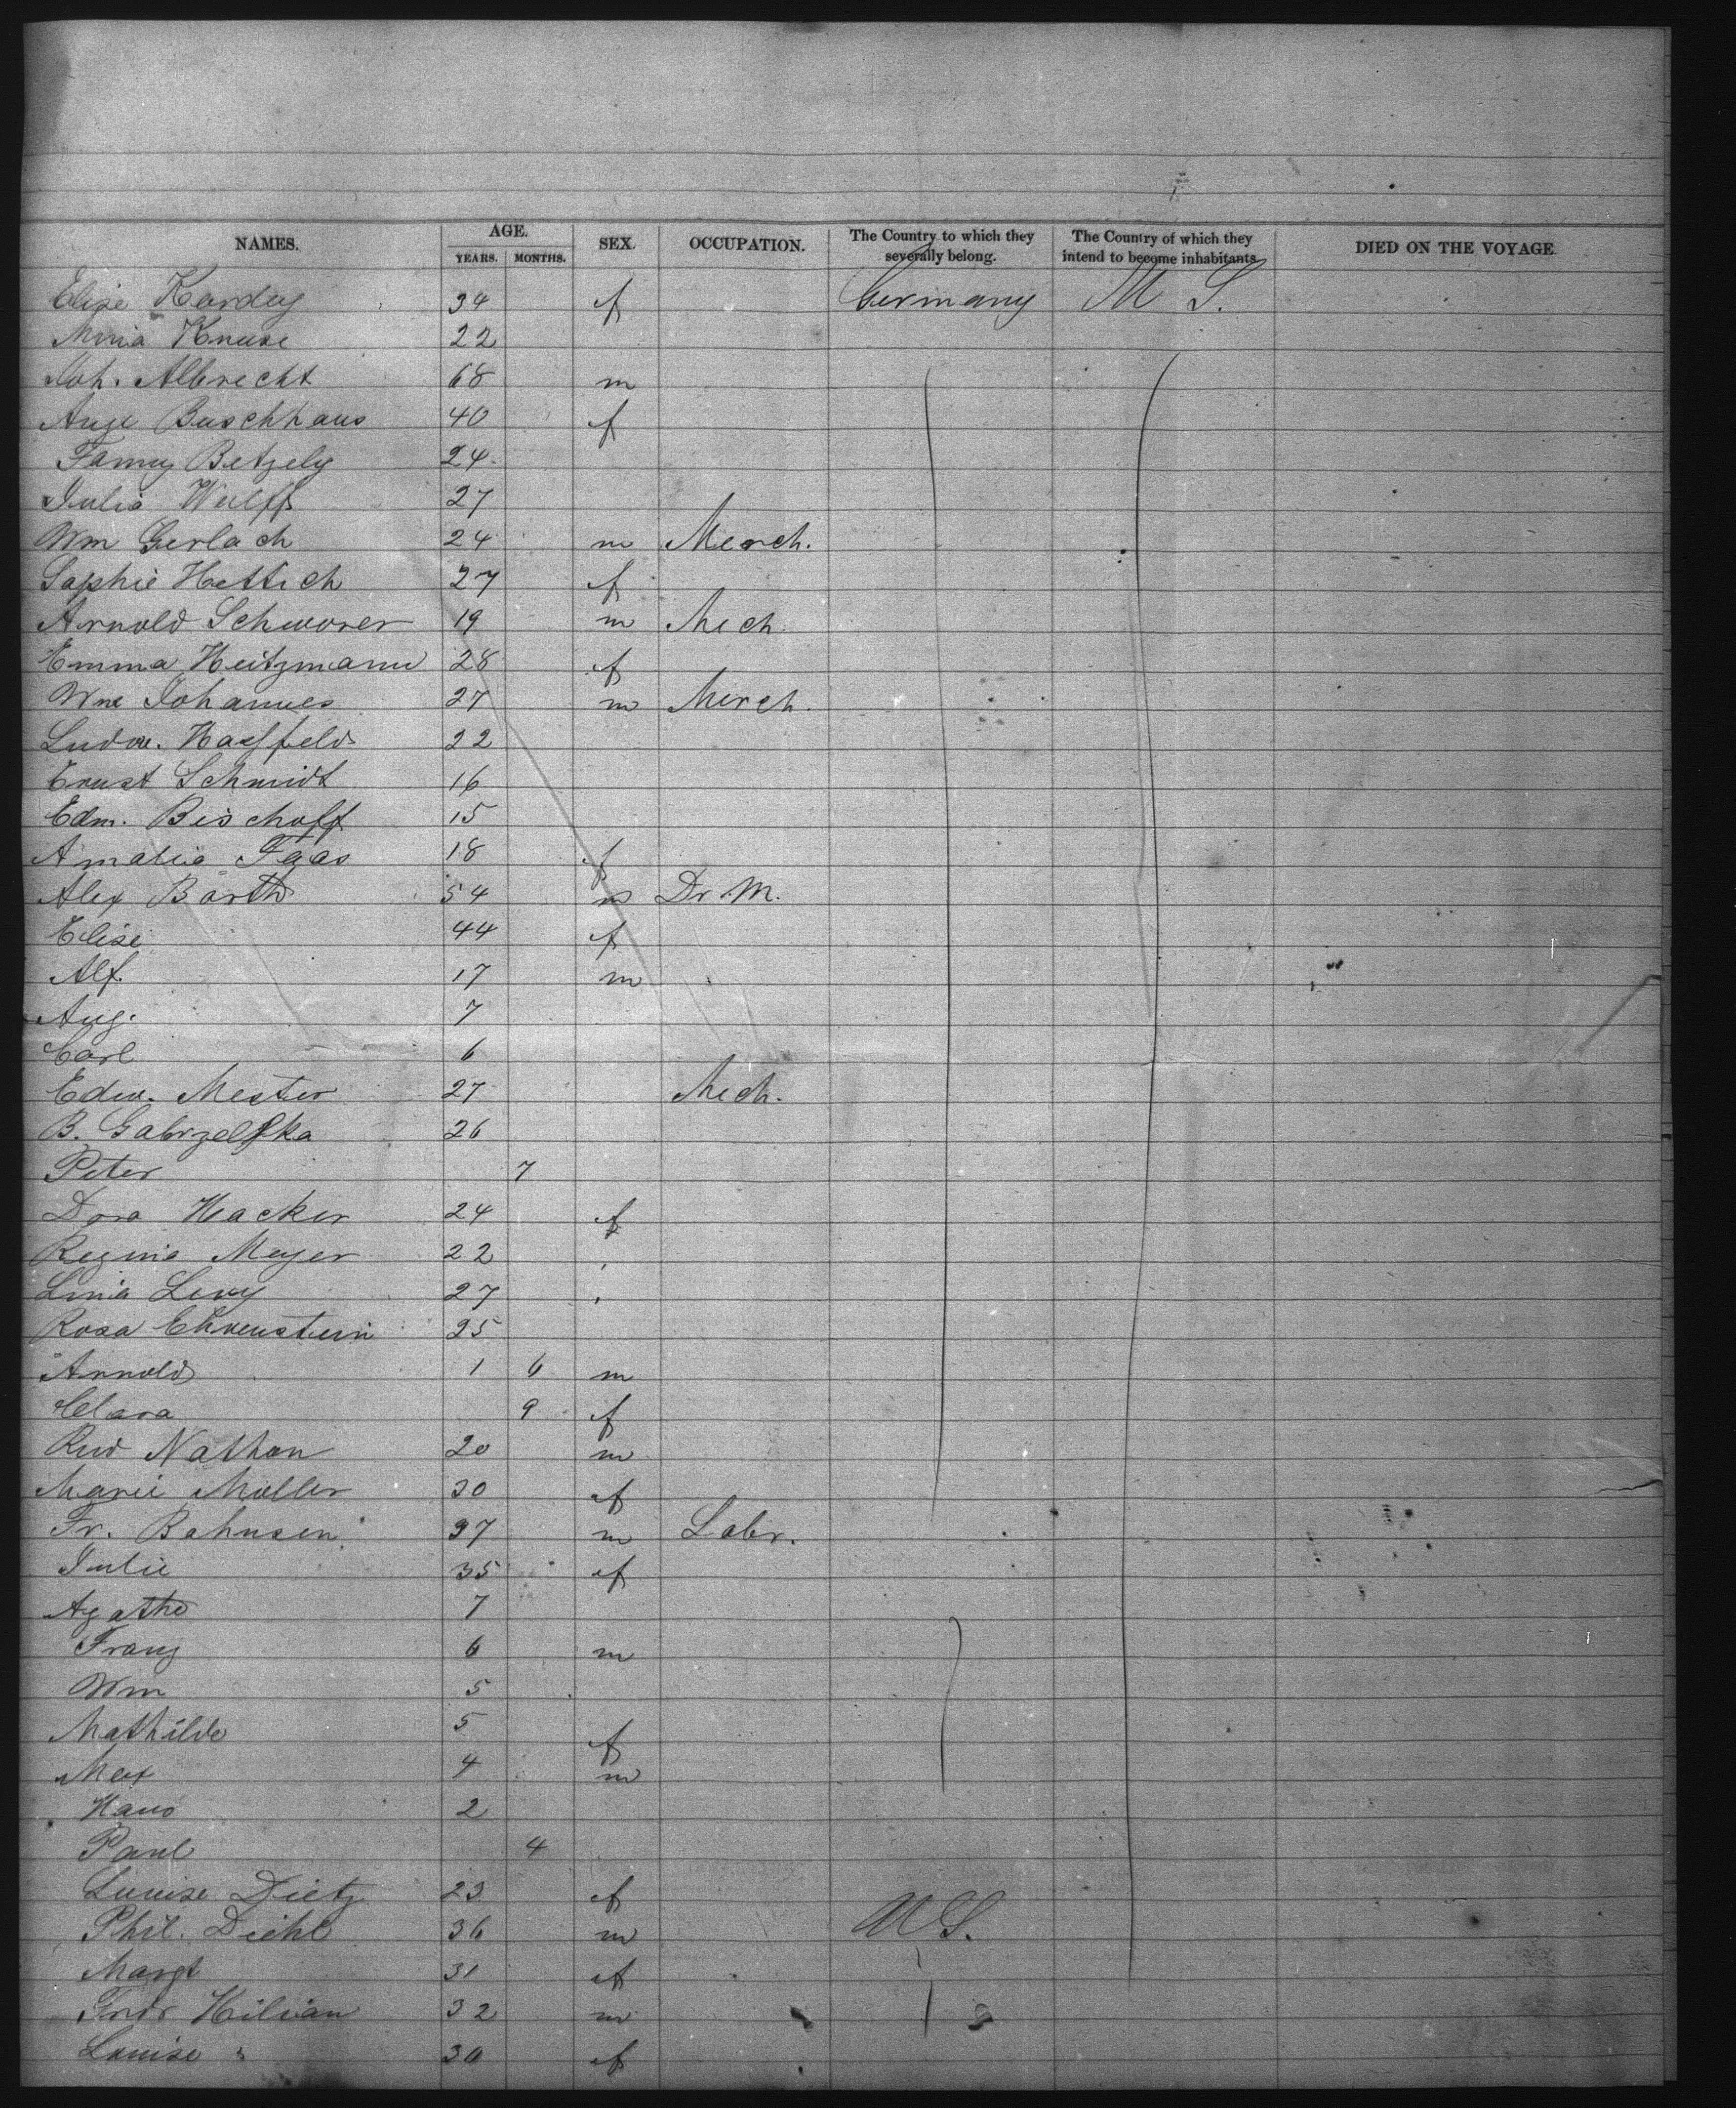 NAMES. AGE. SEX. OCCUPATION. The Country to which they severally belong. The Country of which they intend to become inhabitants. DIED ON THE VOYAGE
YEARS. MONTHS.
Elise 34 f Germany U S.
Kruse 22
Joh. Albrecht 68 m
Buschhaus 40 f
Fanny Betzely 24
Julia Wulff 27
Wm Gerlach 24 m Merch.
Sophie Hettich 27 f
Arnold Schworer 19 m Mech.
Emma Heitzmann 28 f
Wm Johannes 27 m Merch.
Ludw. Hassfeld 22
Ernst Schmidt 16
Edm. Bischoff 15
Amalia Faas 18 f
Alex Barth 54 m Dr. M.
Elise 44 f
Alf. 17 m
Aug. 7
Carl 6
Edw. Mester 27 Mech.
B. 26
Peter 7
Dora Hacker 24 f
Regina Meyer 22
Lina Levy 27
Rosa Ehrenstein 25
Arnold 1 6 m
Clara 9 f
Rud Nathan 20 m
Marie Müller 30 f
Fr. Bahnsen 37 m Labr.
Julie 35 f
Agathe 7
Franz 6 m
Wm 5
Mathilde 5 f
Max 4 m
Hans 2
Paul 4
Louise Dietz 23 f
Phil. Diehl 36 m U S.
Margt 31 f
Fridr Kilian 32 m
Louise " 30 f